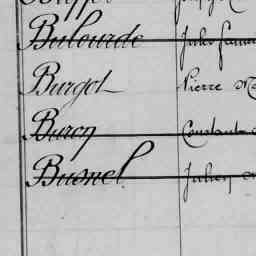 Bulourde Jules
Burgot Pierre
Burcq Constant
Busnel Julien